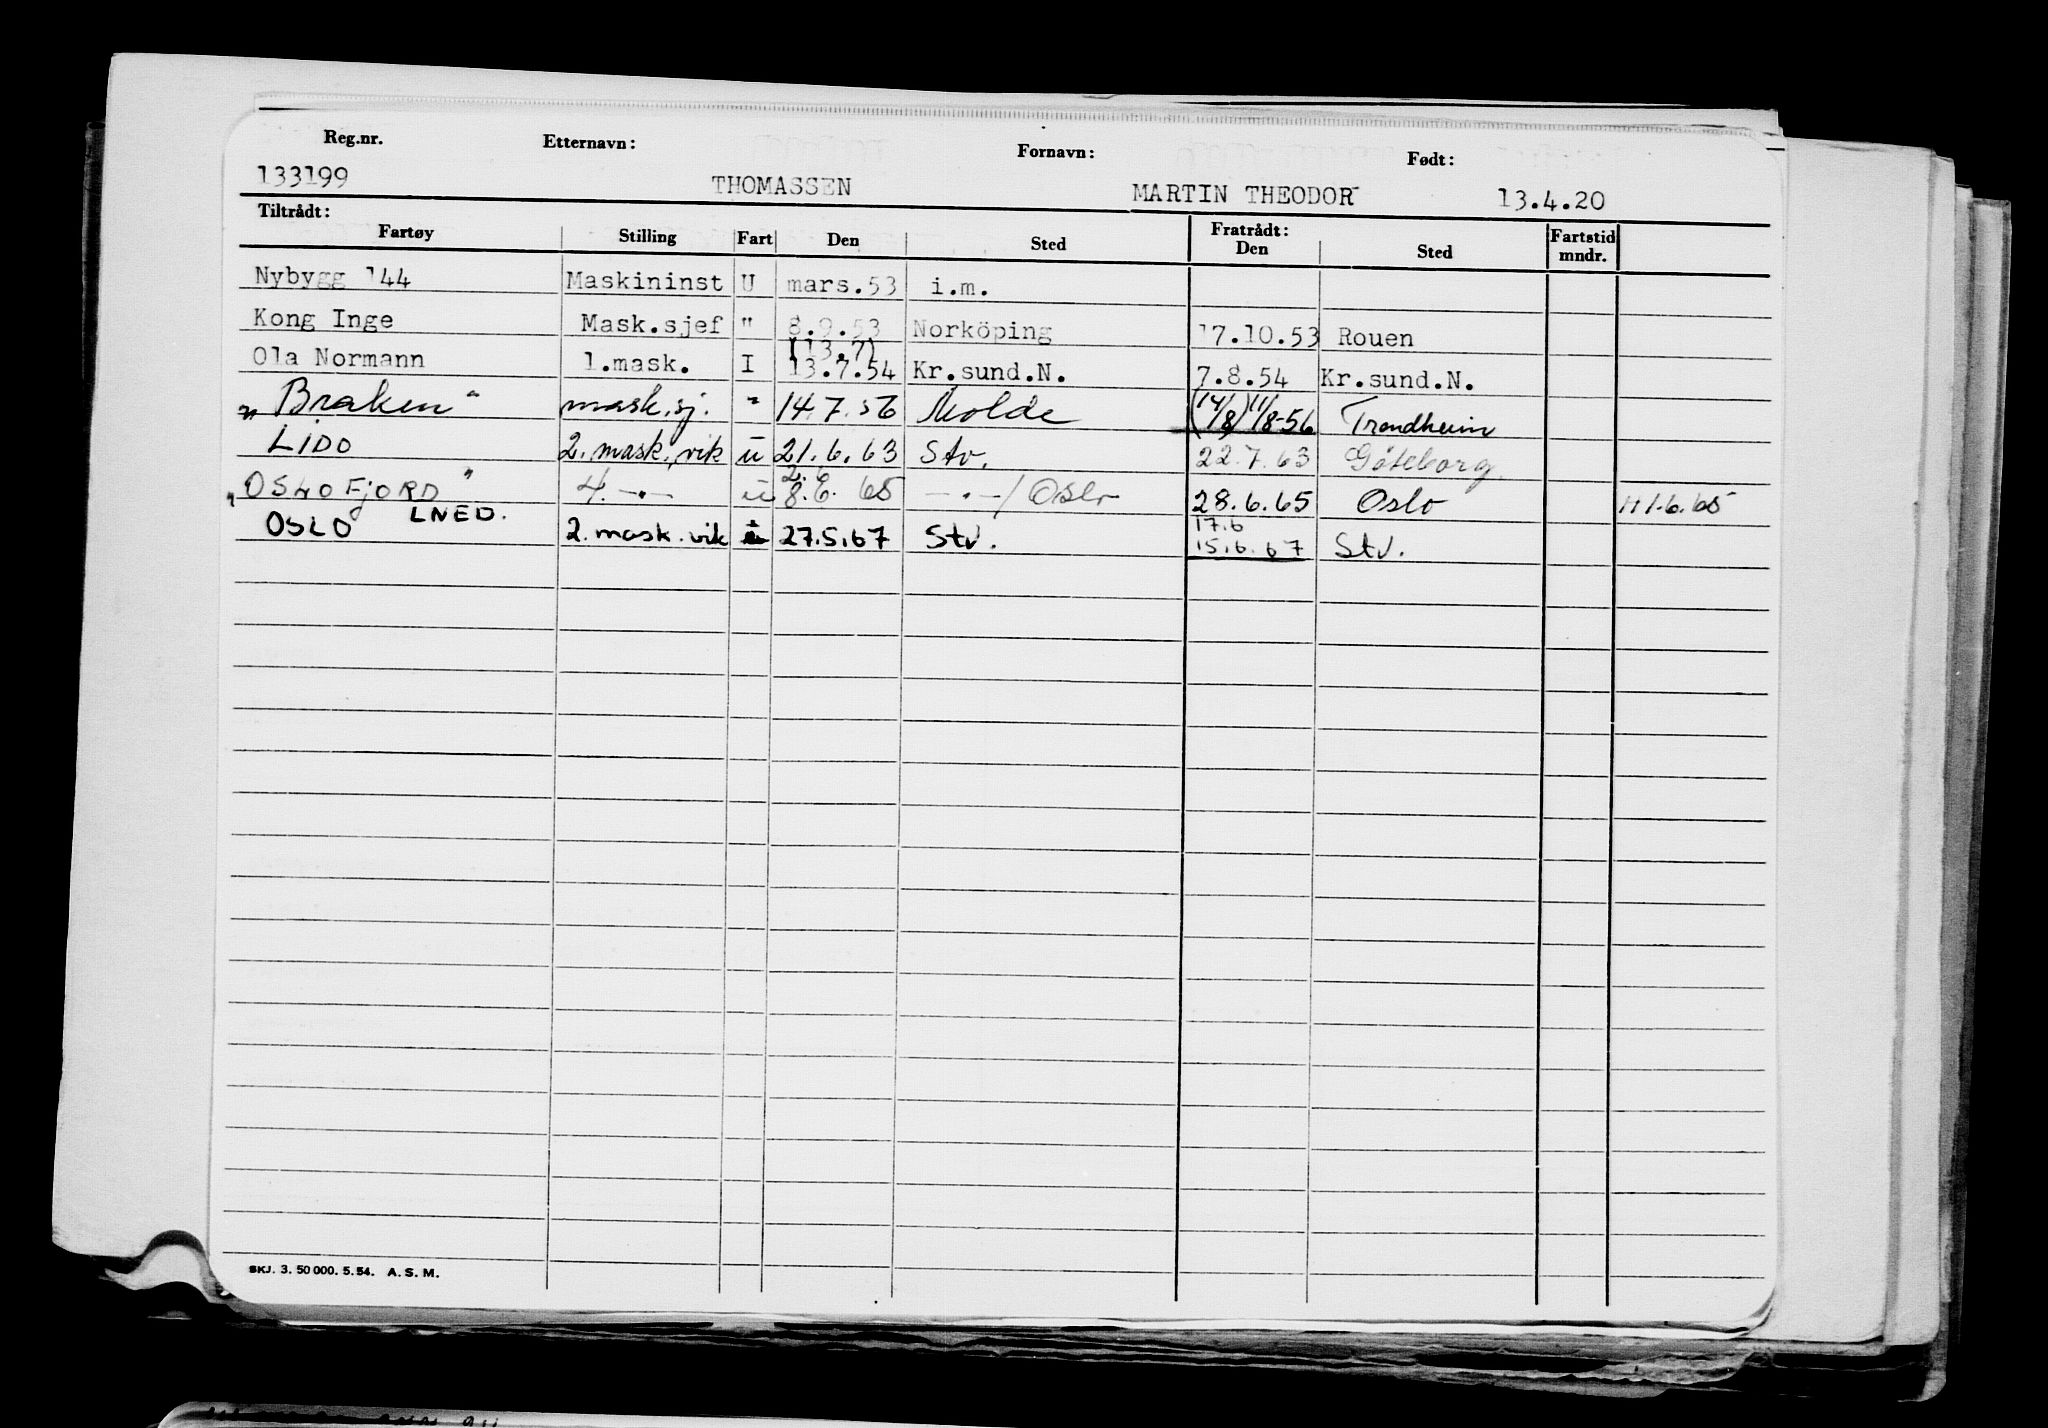 Reg.nr. Etternavn: Fornavn: Født:
133199 THOMASSEN MARTIN THEODOR 13.4.20
Tiltrådt: Fratrådt: Fartstid
Fartøy Stilling Fart Den Sted Den Sted mndr.
Nybygg 144 Maskininst U mars.53 i.m.
Kong Inge Mask.sjef " 8.9.53 Norköping 17.10.53 Rouen
(13.7)
Ola Normann 1.mask. I 13.7.54 Kr.sund.N. 7.8.54 Kr.sund.N.
"Braken" mask.sj. " 14.7.56 Molde (14/8) 11/8-56 Trondheim
LIDO 2. mask. vik u 21.6.63 Stv. 22.7.63 Göteborg
2.6
"OSLOFJORD" 4. -"- u 8.6.65 -"-/Oslo 28.6.65 Oslo 1.6.65
LNED. 17.6
OSLO 2. mask. vik 27.5.67 Stv. 15.6.67 Stv.
SKJ. 3. 50 000. 5.54. A. S. M.